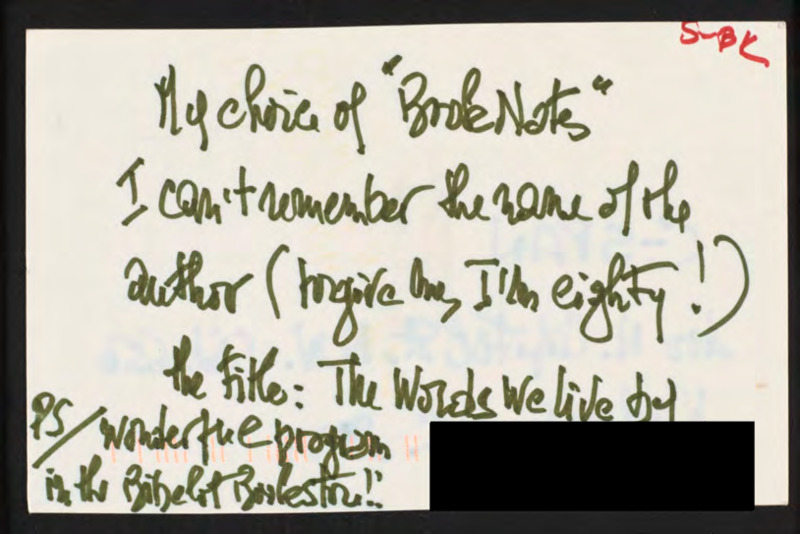 S-BK
My choice of "BookNotes"
I can't remember the name of the
author (forgive me, I'm eighty!)
the title: The Words We live by
PS/wonderful program
in the Bookstore!!